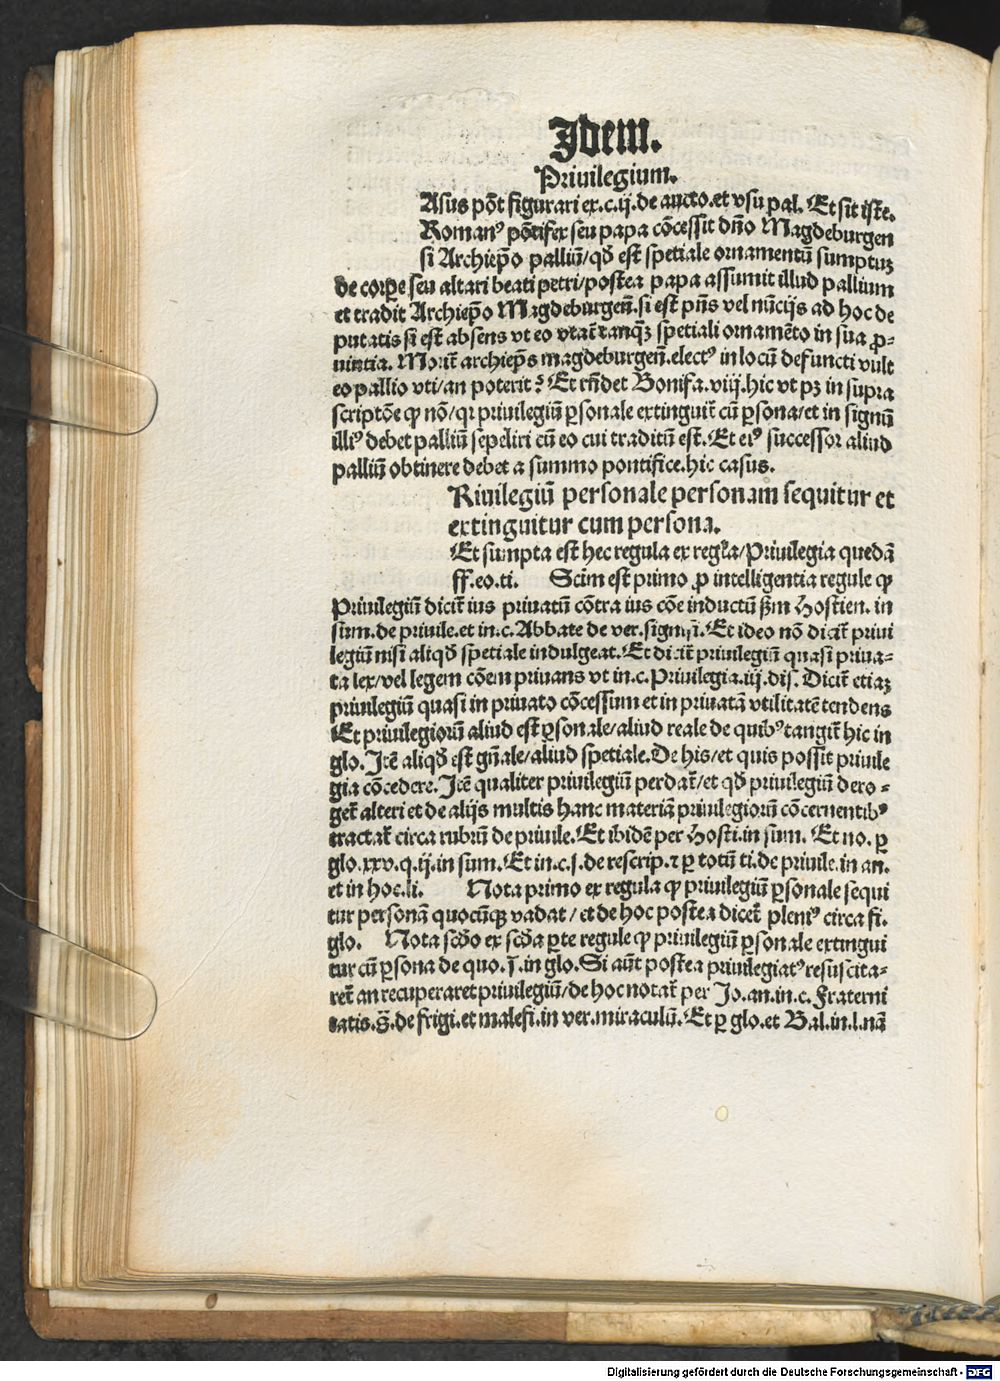 Idem.
Priuilegium.
Asus põt figurari ex.c.ij.de aucto.et vsu pal. Et sit iste.
Romanꝰ põtifex seu papa cõcessit dño Magdeburgen
si Archiep̃o palliũ/qd̃ est spetiale ornamentũ sumptuꝫ
de corpe seu altari beati petri/postea papa assumit illud pallium
et tradit Archiep̃o Magdeburgeñ.si est p̃ns vel nũcijs ad hoc de
putatis si est absens vt eo vtat̃ tanqꝫ spetiali ornamẽto in sua ꝓ-
uintia. Morit̃ archiep̃s magdeburgeñ.electꝰ in locũ defuncti vult
eo pallio vti/an poterit? Et rñdet Bonifa.viij.hic vt pꝫ in supra
scriptõe ꝙ nõ/qꝛ priuilegiũ ꝑsonale extinguit̃ cũ ꝑsona/et in signũ
illiꝰ debet palliũ sepeliri cũ eo cui traditũ est. Et eiꝰ successor aliud
palliũ obtinere debet a summo pontifice.hic casus.
Riuilegiũ personale personam sequitur et
extinguitur cum persona.
Et sumpta est hec regula ex regl̃a/Priuilegia quedã
ff.eo.ti. Sciẽm est primo ꝓ intelligentia regule ꝙ
Priuilegiũ dicit̃ ius priuatũ cõtra ius cõe inductũ ẞm Hostien. in
sũm.de priuile.et in.c.Abbate de ver.signĩ. Et ideo nõ dicit̃ priui
legiũ nisi aliqd̃ spetiale indulgeat. Et dicit̃ priuilegiũ quasi priua-
ta lex/vel legem cõem priuans vt in.c.Priuilegia.iij.dis. Dicit̃ etiaꝫ
priuilegiũ quasi in priuato cõcessum et in priuatã vtilitatẽ tendens
Et priuilegiorũ aliud est ꝑsonale/aliud reale de quibꝰ tangit̃ hic in
glo. Itẽ aliqd̃ est gñale/aliud spetiale. De his/et quis possit priuile
gia cõcedere. Itẽ qualiter priuilegiũ perdat̃/et qd̃ priuilegiũ dero-
get̃ alteri et de alijs multis hanc materiã priuilegiorũ cõcernentibꝰ
tractat̃ circa rubrũ de priuile. Et ibidẽ per Hosti.in sum. Et no. ꝑ
glo.xxv.q.ij.in sum. Et in.c.j.de rescrip.⁊ ꝑ totũ ti.de priuile.in an.
et in hoc.li. Nota primo ex regula ꝙ priuilegiũ ꝑsonale sequi
tur personã quocũqꝫ vadat/et de hoc postea dicet̃ pleniꝰ circa fi.
glo. Nota scd̃o ex scd̃a ꝑte regule ꝙ priuilegiũ ꝑsonale extingui
tur cũ ꝑsona de quo.j̃.in glo. Si aũt postea priuilegiatꝰ resuscita-
ret̃ an recuperaret priuilegiũ/de hoc notat̃ per Jo.an.in.c.Fraterni
tatis.§.de frigi.et malefi.in ver.miraculũ. Et ꝑ glo.et Bal.in.l.nã
Digitalisierung gefördert durch die Deutsche Forschungsgemeinschaft - DFG